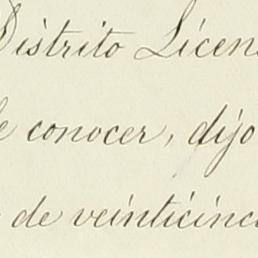 Distrito Licen
e conocer, dijo
de veinticinc